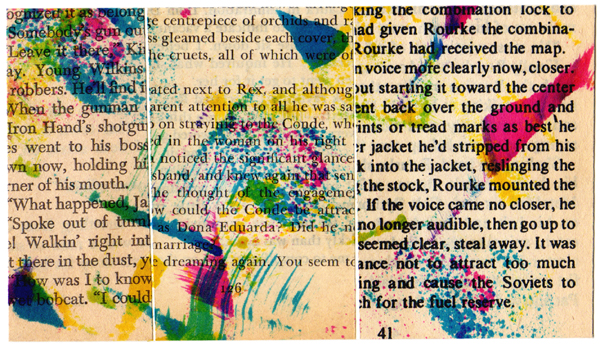 ognized it as belong
Somebody's gun qui
Leave it there," Kin
ay. Young Wilkins
robbers. He'll find
When the gunman
Iron Hand's shotgu
es went to his boss
wn now, holding hi
rner of his mouth.
"What happened, Ja
"Spoke out of turn
e! Walkin' right int
t there in the dust, y
"How was I to know
bobcat. "I could
e centrepiece of orchids and r
ss gleamed beside each cover, th
he cruets, all of which were of
ated next to Rex, and althoug
arent attention to all he was sa
on straying to the Conde, who
d in the woman on his right
noticed the significant glance
sband, and knew again that sen
he thought of the engageme
w could the Conde be attrac
as Doña Eduarda? Did he no
marriage
e dreaming again. You seem to
126
king the combination lock to
ad given Rourke the combina-
Rourke had received the map.
n voice more clearly now, closer.
out starting it toward the center
ent back over the ground and
ints or tread marks as best he
r jacket he'd stripped from his
k into the jacket, reslinging the
g the stock, Rourke mounted the
If the voice came no closer, he
no longer audible, then go up to
seemed clear, steal away. It was
ance not to attract too much
ing and cause the Soviets to
ch for the fuel reserve.
41